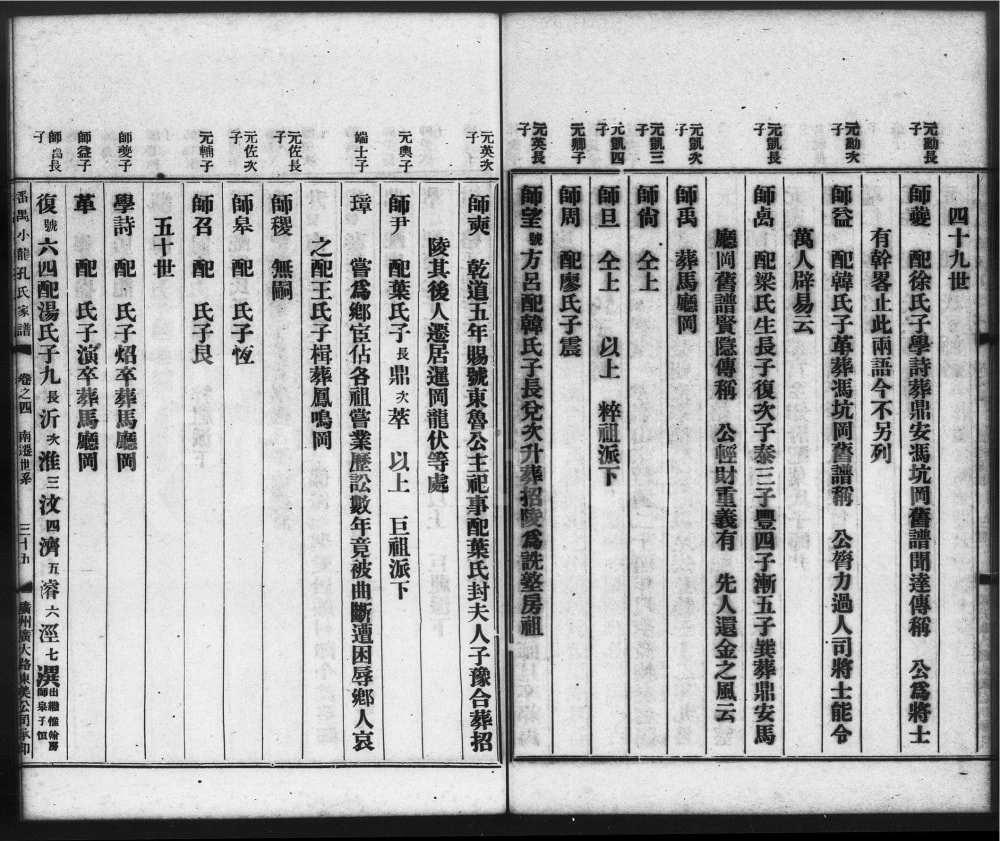 四十九世
元勛長子
師夔 配徐氏子學詩葬鼎安馮坑岡舊譜聞達傳稱 公爲將士
有幹畧止此兩語今不另列
元勛次子
師益 配韓氏子革葬馮坑岡舊譜稱 公膂力過人司將士能令
萬人辟易云
元凱長子
師卨 配梁氏生長子復次子泰三子豐四子漸五子巽葬鼎安馬
廳岡舊譜賢隱傳稱 公輕財重義有 先人還金之風云
元凱次子
師禹 葬馬廳岡
元凱三子
師尙 仝上
元凱四子
師旦 仝上 以上 粹祖派下
元卿子
師周 配廖氏子震
元英長子
師望號方呂配韓氏子長兌次升葬招陵爲詵塋房祖
元英次子
師奭 乾道五年賜號東魯公主祀事配葉氏封夫人子豫合葬招
陵其後人遷居暹岡龍伏等處
元興子
師尹 配葉氏子長鼎次萃 以上 巨祖派下
端士子
璋 嘗爲鄉宦佔各祖嘗業歷訟數年竟被曲斷遭困辱鄉人哀
之配王氏子楫葬鳳鳴岡
元佐長子
師稷 無嗣
元佐次子
師皋 配 氏子恆
元輔子
師召 配 氏子艮
五十世
師夔子
學詩 配 氏子炤卒葬馬廳岡
師益子
革 配 氏子演卒葬馬廳岡
師卨長子
復號六四配湯氏子九長沂次淮三汶四濟五濬六涇七潩出繼惟翰房師皋子恆
番禺小龍孔氏家譜 卷之四 南遷世系 三十五 廣州廣大路東美公司承印